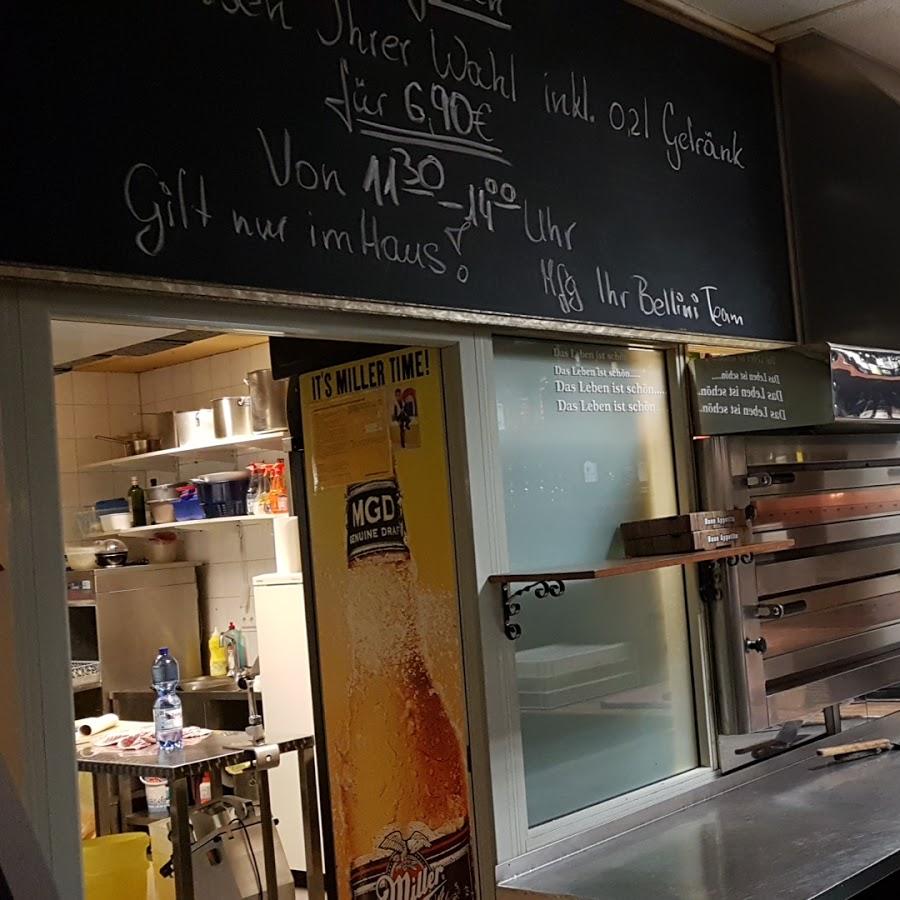 Ihrer Wahl inkl. 0,2l Getränk
für 6,90€
Von 11³⁰ - 14⁰⁰ Uhr
Gilt nur im Haus!
Mfg Ihr Bellini Team
IT'S MILLER TIME!
MGD
GENUINE DRAFT
Miller
Das Leben ist schön
Das Leben ist schön....
Das Leben ist schön....
Das Leben ist schön
Das Leben ist schön...
Das Leben ist schön.
Das Leben ist schön..
Das Leben ist schön.
Buon Appetito
Buon Appetito